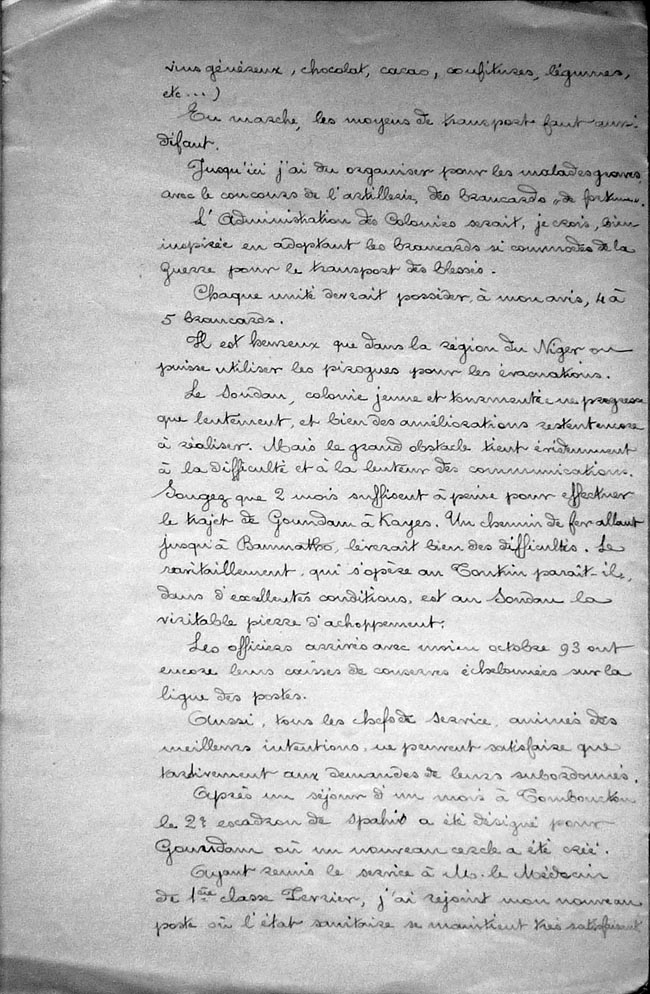 vins généreux, chocolat, cacao, confitures, légumes,
etc...)
En marche, les moyens de transport font aussi
défaut.
Jusqu'ici j'ai du organiser pour les malades graves,
avec le concours de l'artillerie, des brancards "de fortune".
L'Administration des Colonies serait, je crois, bien
inspirée en adoptant les brancards si commodes de la
Guerre pour le transport des blessés.
Chaque unité devrait posséder, à mon avis, 4 à
5 brancards.
Il est heureux que dans la région du Niger on
puisse utiliser les pirogues pour les évacuations.
Le Soudan, colonie jeune et tourmentée ne progresse
que lentement, et bien des améliorations restent encore
à réaliser. Mais le grand obstacle tient évidemment
à la difficulté et à la lenteur des communications.
Songez que 2 mois suffisent à peine pour effectuer
le trajet de Goundam à Kayes. Un chemin de fer allant
jusqu'à Bammako, lèverait bien des difficultés. Le
ravitaillement, qui s'opère au Tonkin paraît-il,
dans d'excellentes conditions, est au Soudan la
véritable pierre d'achoppement.
Les officiers arrivés avec moi en octobre 93 ont
encore leurs caisses de conserves échelonnées sur la
ligne des postes.
Aussi, tous les chefs de service, animés des
meilleurs intentions, ne peuvent satisfaire que
tardivement aux demandes de leurs subordonnés.
Après un séjour d'un mois à Tombouctou
le 2e escadron de spahis a été désigné pour
Goundam où un nouveau cercle a été créé.
Ayant remis le service à M. le Médecin
de 1ère classe j'ai rejoint mon nouveau
poste où l'état sanitaire se maintient très satisfaisant